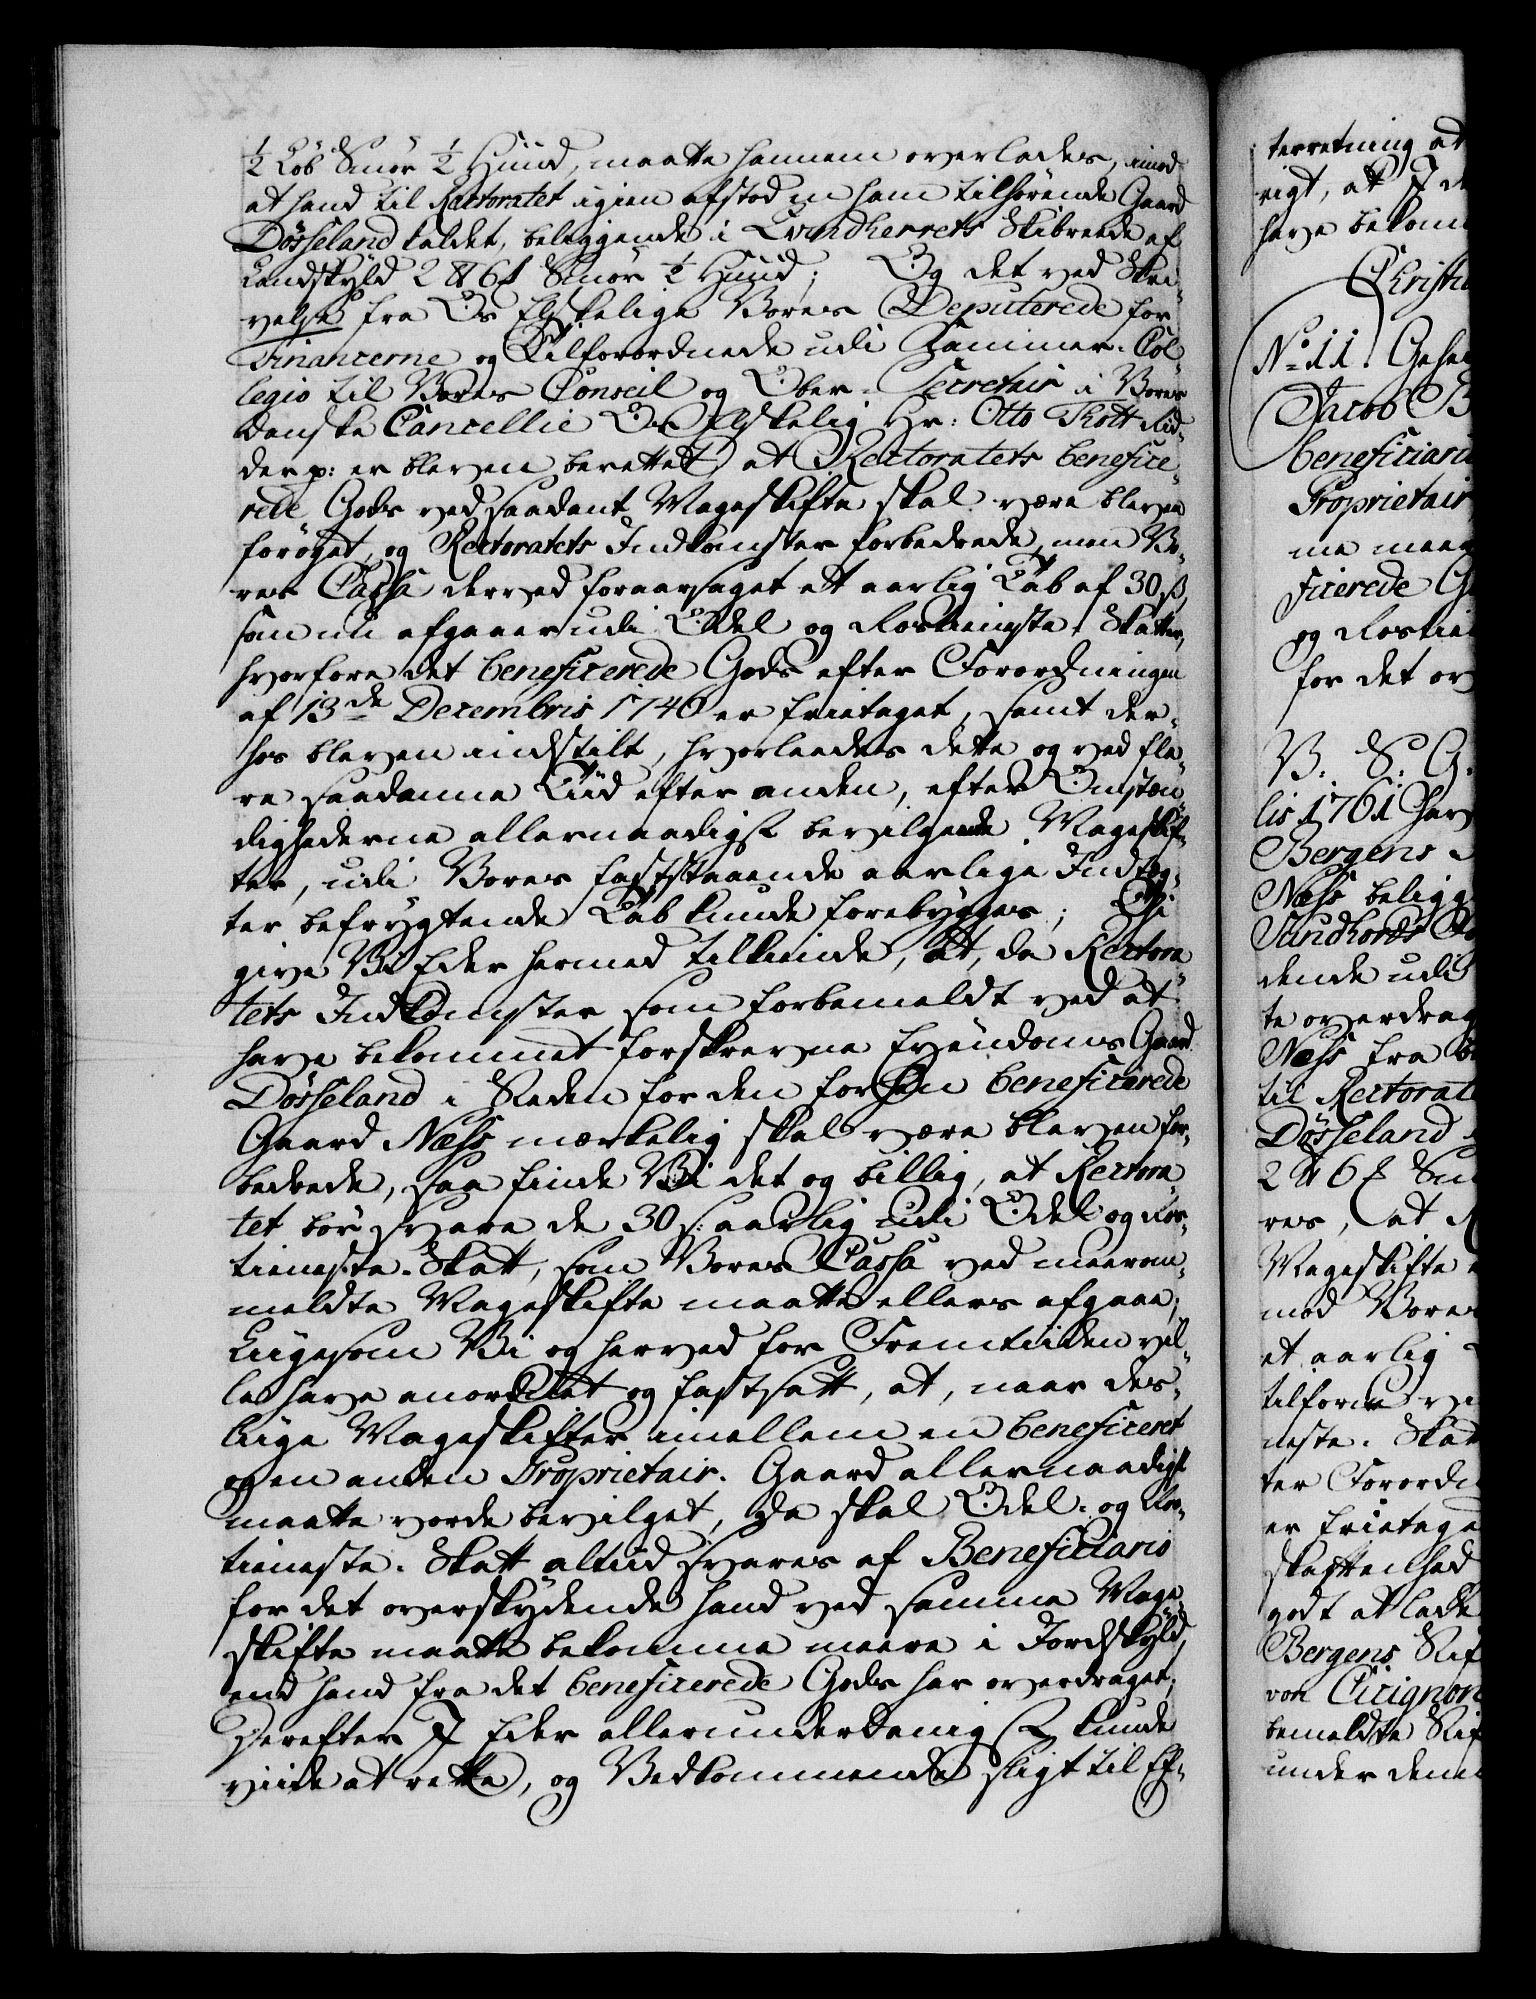 ½ Løb Smør ½ Huud, maatte hannem overlades, imod
at hand til Rectoratet igien afstod en ham tilhørende Gaard
Dösseland kaldet, beliggende i Qvindherrets Skibreede af
Landskyld 2 ... 6 ... Smør ½ Huud; Og det ved Skri-
velse fra Os Elskelige Vores Deputerede for
Financerne og Tilforordnede udi Cammer-Col-
legio til Vores Conseil og Ober-Secretair i Vores
danske Cancellie Os Elskelig Hr: Otto Thott Rid-
der p: er bleven berettet, at Rectoratets benefice-
rede Gods ved saadant Mageskifte skal være bleven
forøget, og Rectoratets Indkomster forbedrede, men Vo-
res Cassa derved foraarsaget et aarlig Tab af 30 ß,
som nu afgaaer udi Odel og Rostieneste-Skatter,
hvorfore det beneficerede Gods efter Forordningen
af 13de Decembris 1746 er frietaget, samt der-
hos bleven indstilt, hvorleedes dette og ved fle-
re saadanne Tiid efter anden, efter Omstæn-
dighederne allernaadigst bevilgende Mageskif-
ter, udi Vores faststaaende aarlige Indteg-
ter befrygtende Tab kunde forebygges; Thi
give Vi Eder hermed tilkiende, at, da Rectora-
tets Indkomster som forbemeldt ved at
have bekommet forskrevne Eyendoms Gaard
Dösseland i Steden for den forhen beneficerede
Gaard Næss mærkelig skal være bleven for-
bedrede, saa finde Vi det og billig, at Rectora-
tet bör svare de 30 ß: aarlig udi Odel og Ros-
tieneste-Skatt, som Vores Cassa ved meerom-
meldte Mageskifte maatte ellers afgaae;
Liigesom Vi og herved for Fremtiiden vil-
le have anordnet og fastsatt, at, naar des-
liige Mageskifter imellem en beneficeret
og en anden Proprietair-Gaard allernaadigst
maatte vorde bevilget, da skal Odel- og Ros-
tieneste-Skatt altiid svares af Beneficiario
for det overskydende hand ved samme Mage-
skifte maatte bekomme meere i Jordskyld,
end hand fra det beneficerede Gods har overdraget;
Derefter I Eder allerunderdanigst kunde
viide at rette, og Vedkommende sligt til Ef-
terretning at
rigt, at I de
have bekom
Christia
No 11. Gehei
Jacob B
beneficiard
Proprietair
me maag
ficerede G
og Rostien
for det ov
V. S. G.
lis 1761 har
Bergens
Næss beligg
Sundhords
dende udi
te overdrag
Næss fra
til Rectorat
Dösseland
2 ... 6 ... Sm
res, at R
Mageskifte
mod Vores
et aarlig
tilforne
neste-Skat
ter Forordn
er frietage
skaffenhed
godt at lade
Bergens Stif
von Cicignon
bemeldte Stif
under den